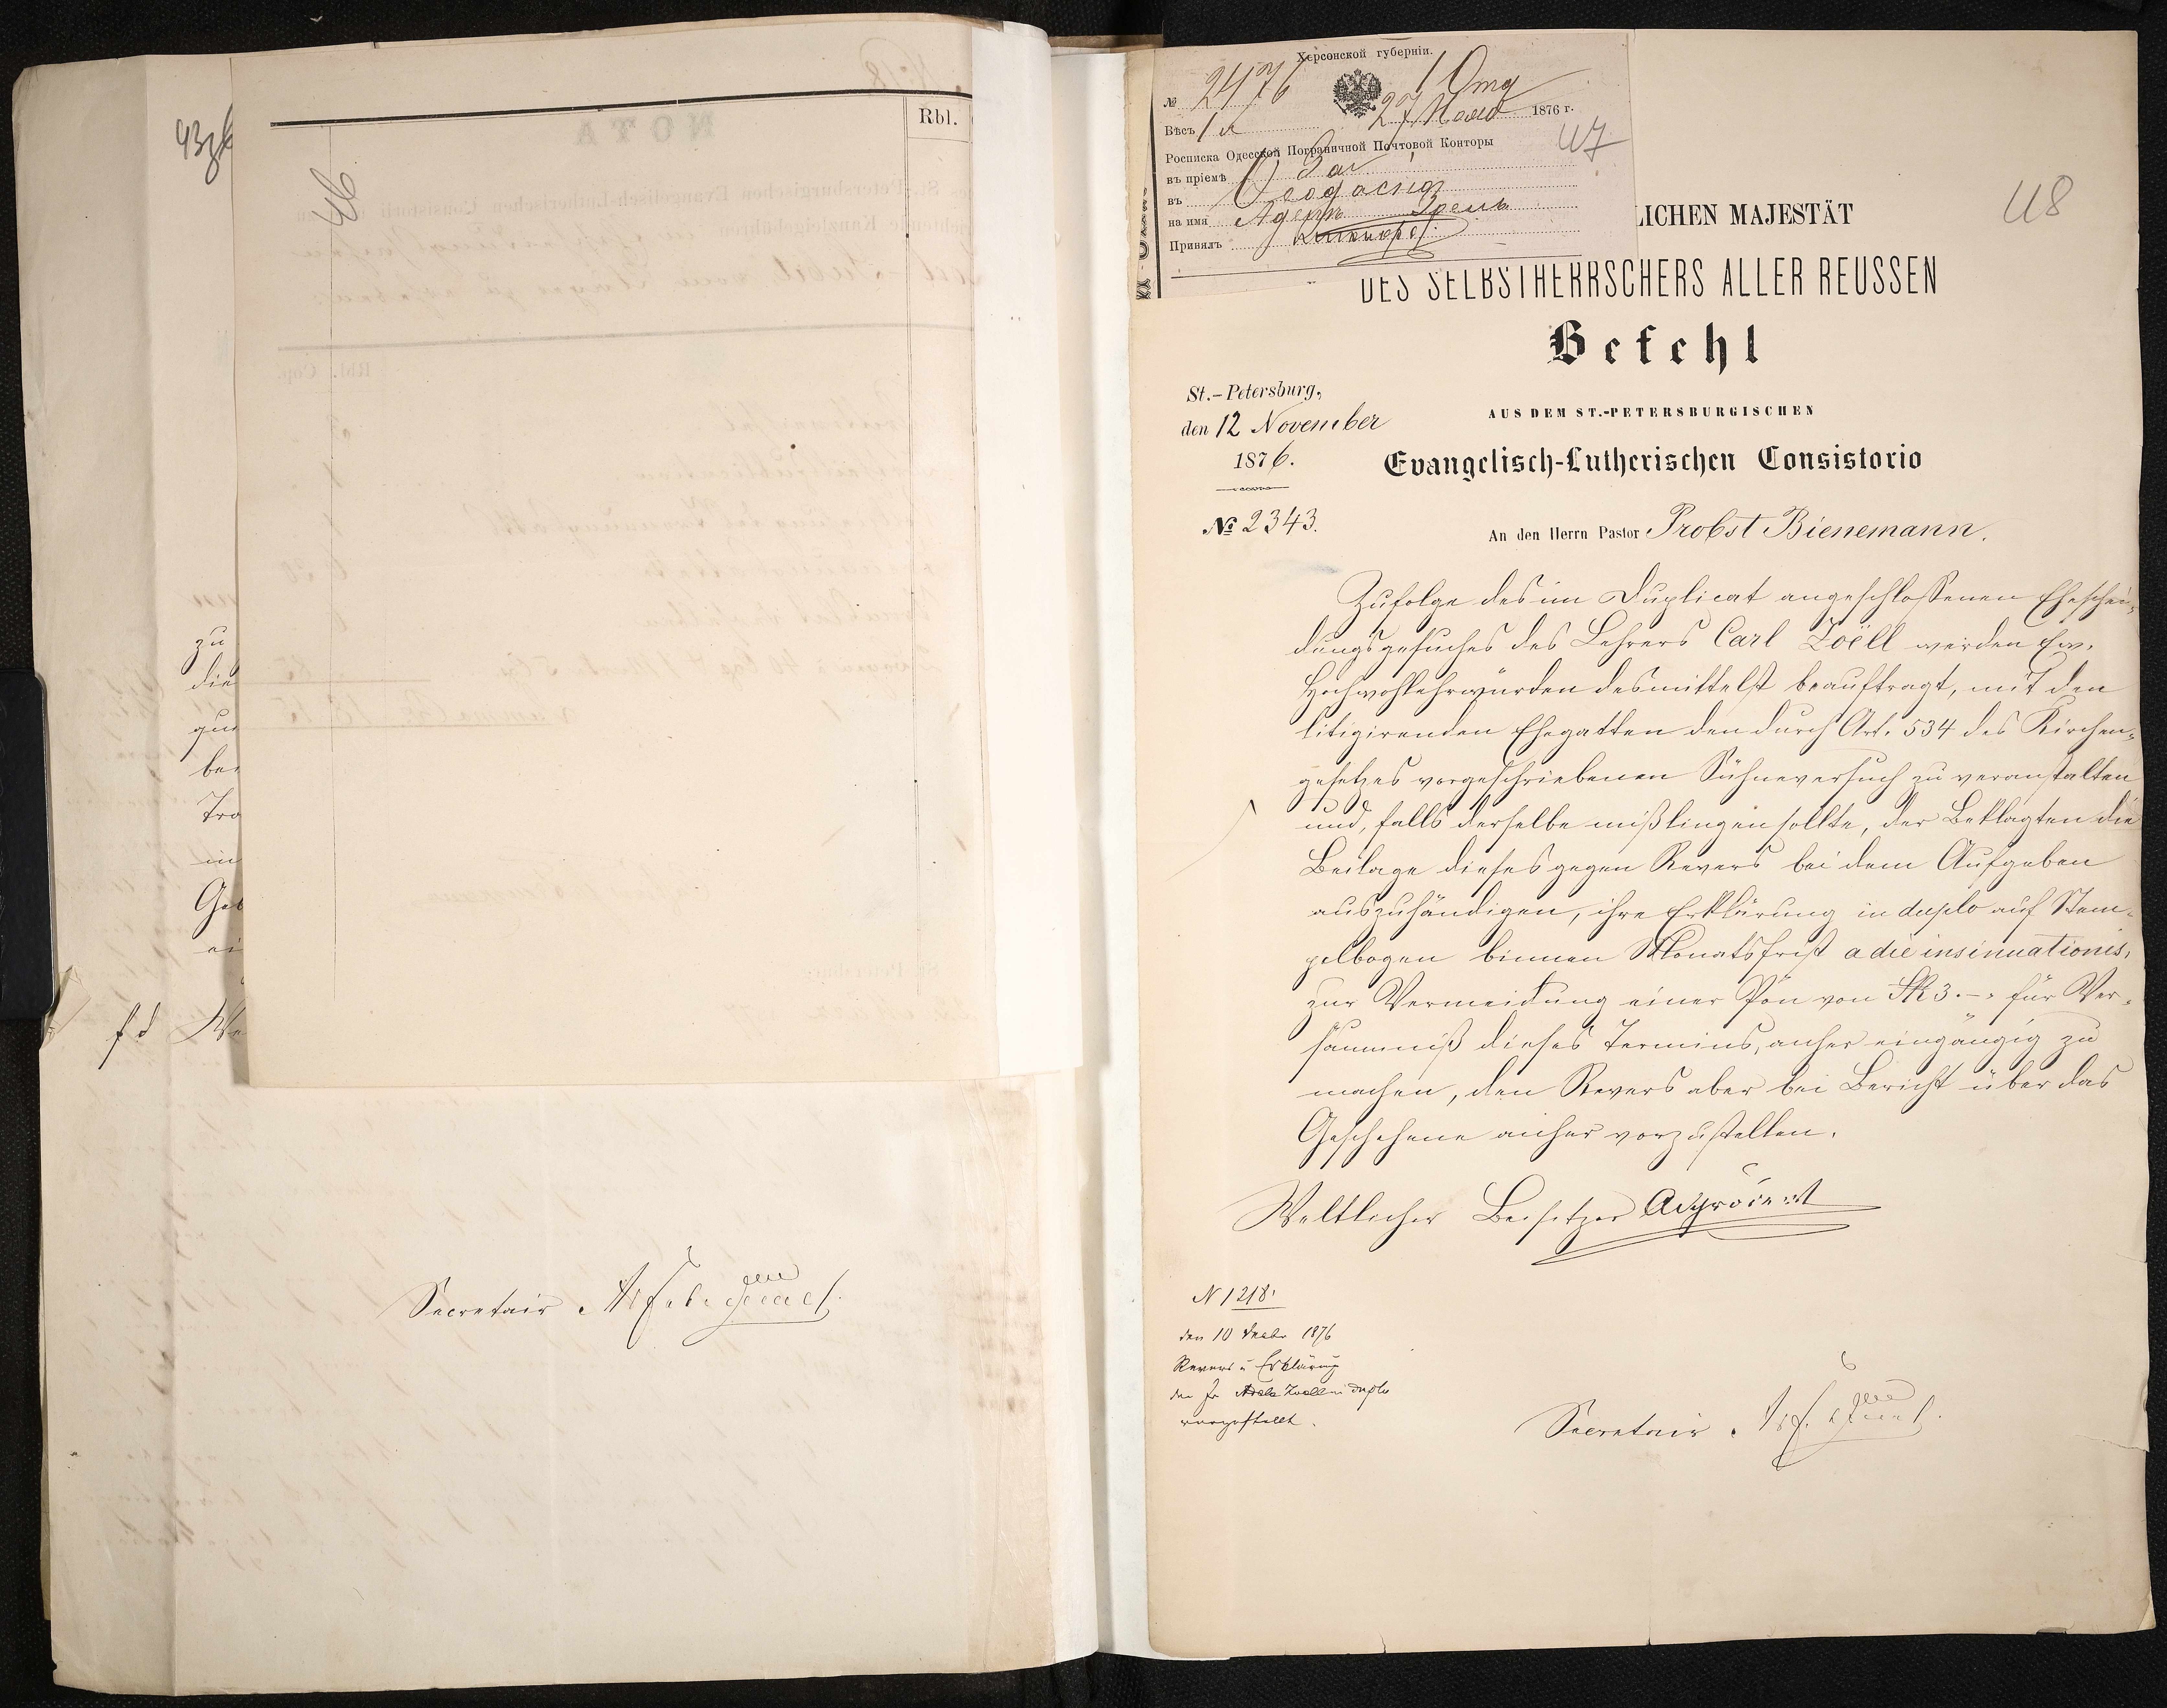 43
46
Rbl.
zu
die
be
Tro
in
Geb
ei
f d
Secretair
Херсонской губерніи.
№ 2476
1 Отд
27 1876 г.
Вѣсъ 1 л
47
Росписка Одесской Пограничной Почтовой Конторы
въ пріемѣ Заг
въ Ѳеодосію
на имя
Принялъ
48
LICHEN MAJESTÄT
DES SELBSTHERRSCHERS ALLER REUSSEN
Befehl
St.-Petersburg,
den 12 November
1876.
№ 2343.
AUS DEM ST.-PETERSBURGISCHEN
Evangelisch-Lutherischen Consistorio
An den Herrn Pastor Probst Bienemann.
Zufolge des im Duplicat angeschlossenen Eheschei-
dungsgesuches des Lehrers Carl Zoëll werden Ew.
Hochwohlehrwürden desmittelst beauftragt, mit den
litigirenden Ehegatten den durch Art. 534 des Kirchen-
gesetzes vorgeschriebenen Sühneversuch zu veranstalten
und, falls derselbe mißlingen sollte, der Beklagten die
Beilage dieses gegen Revers bei dem Aufgeben
auszuhändigen, ihre Erklärung in duplo auf Stem-
pelbogen binnen Monatsfrist a die insinuationis,
zur Vermeidung einer Pön von SR 3.- für Ver-
säumniß dieses Termins, anher eingängig zu
machen, den Revers aber bei Bericht über das
Geschehene anher vorzustellen.
Weltlicher Beisitzer
N 1218.
den 10 Decbr 1876
Revers u Erklärung
der Fr Adele Zoell in duplo
vorgestellt.
Secretair